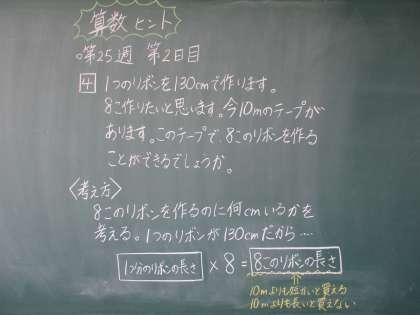 算数 ヒント
○第25週 第2日目
4 1つのリボンを130cmで作ります。
8こ作りたいと思います。今10mのテープが
あります。このテープで、8このリボンを作る
ことができるでしょうか。
〈考え方〉
8このリボンを作るのに何cmいるかを
考える。1つのリボンが130cmだから…
1つ分のリボンの長さ × 8 = 8このリボンの長さ
⇑
10mよりも短かいと買える
10mよりも長いと買えない